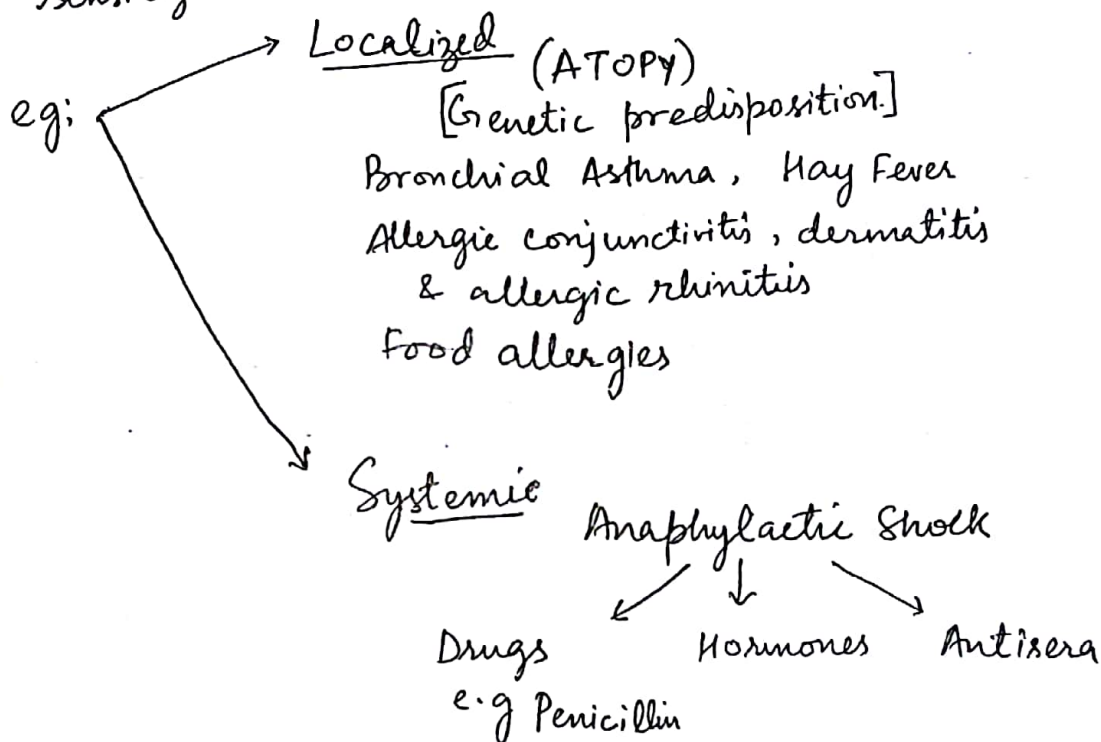 Localized
eg; (ATOPY)
[Genetic predisposition.]
Bronchial Asthma, Hay Fever
Allergic conjunctivitis, dermatitis
& allergic rhinitis
Food allergies
Systemic
Anaphylactic Shock
Drugs Hormones Antisera
e.g Penicillin